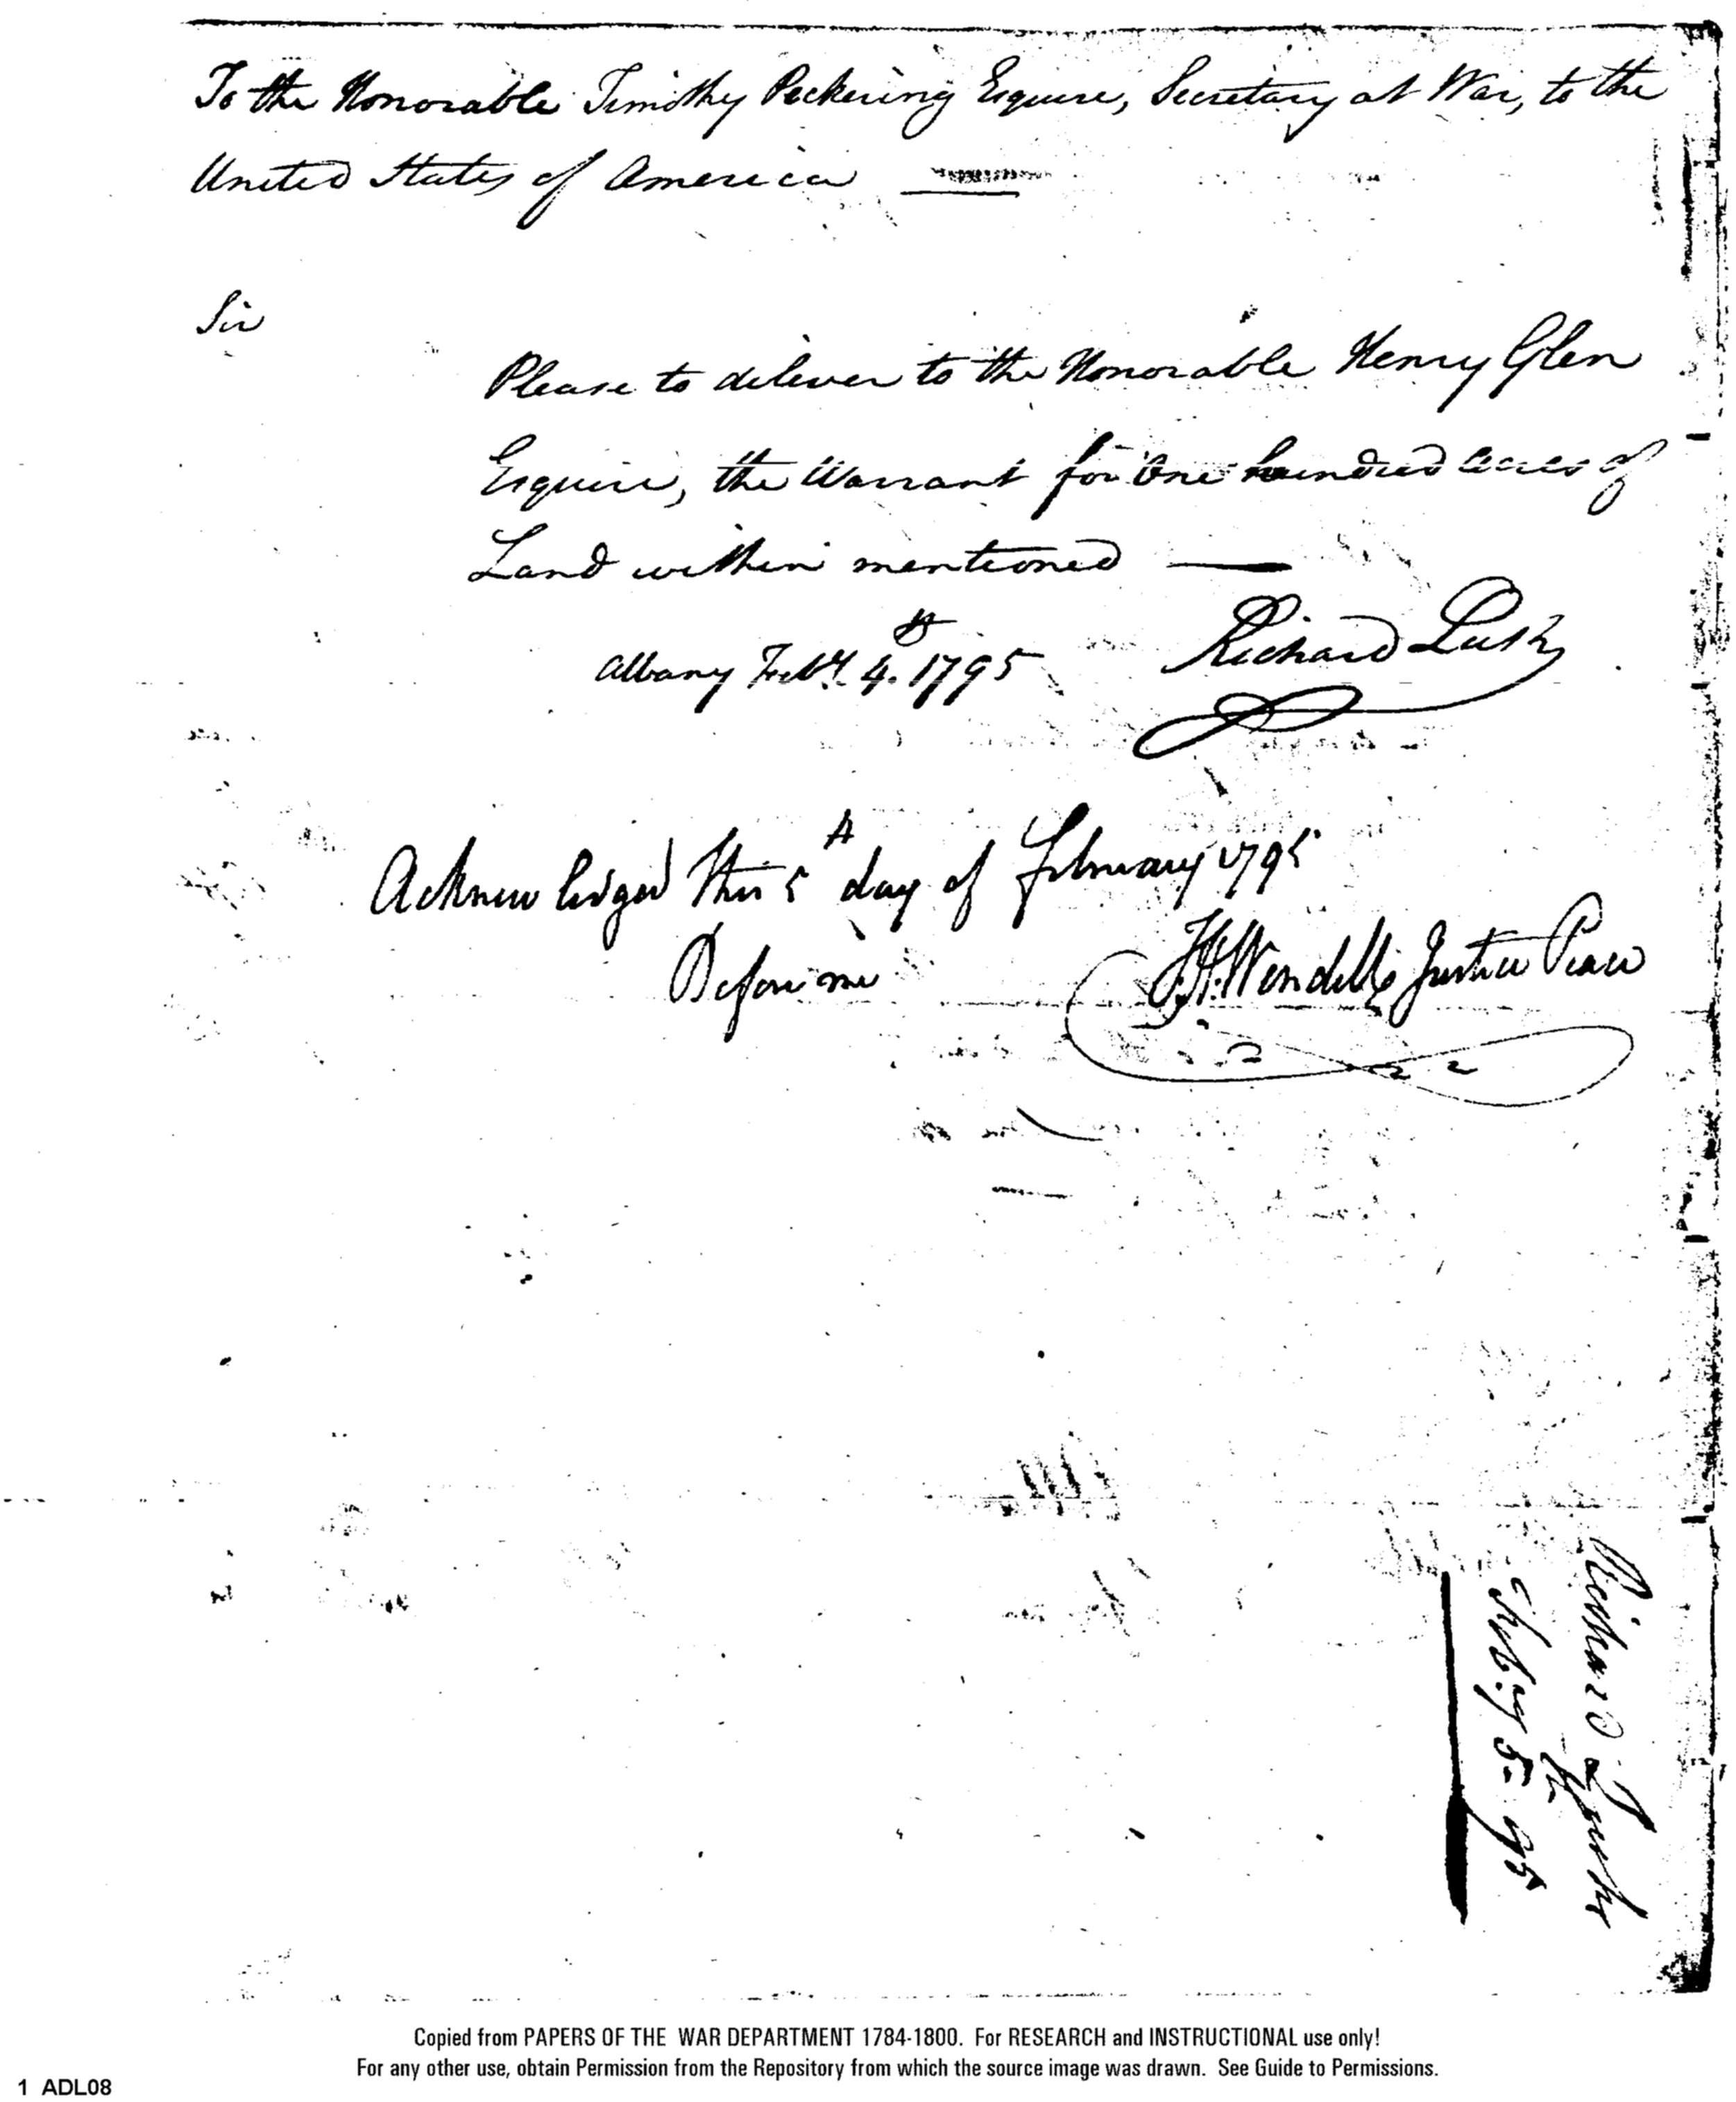 To the Honorable Timothy Pickering Esquire, Secretary at War, to the
United States of America
Sir
Please to deliver to the Honorable Henry Glen
Esquire, the Warrant for One hundred acres of
Land within mentioned
Albany Feby. 4th. 1795
Richard Lush
Acknowledged this 5th day of February 1795
Before me
H. Wendell Justice Peace
Richard Lush
Feby 5th 95
Copied from PAPERS OF THE WAR DEPARTMENT 1784-1800. For RESEARCH and INSTRUCTIONAL use only!
For any other use, obtain Permission from the Repository from which the source image was drawn. See Guide to Permissions.
1 ADL08